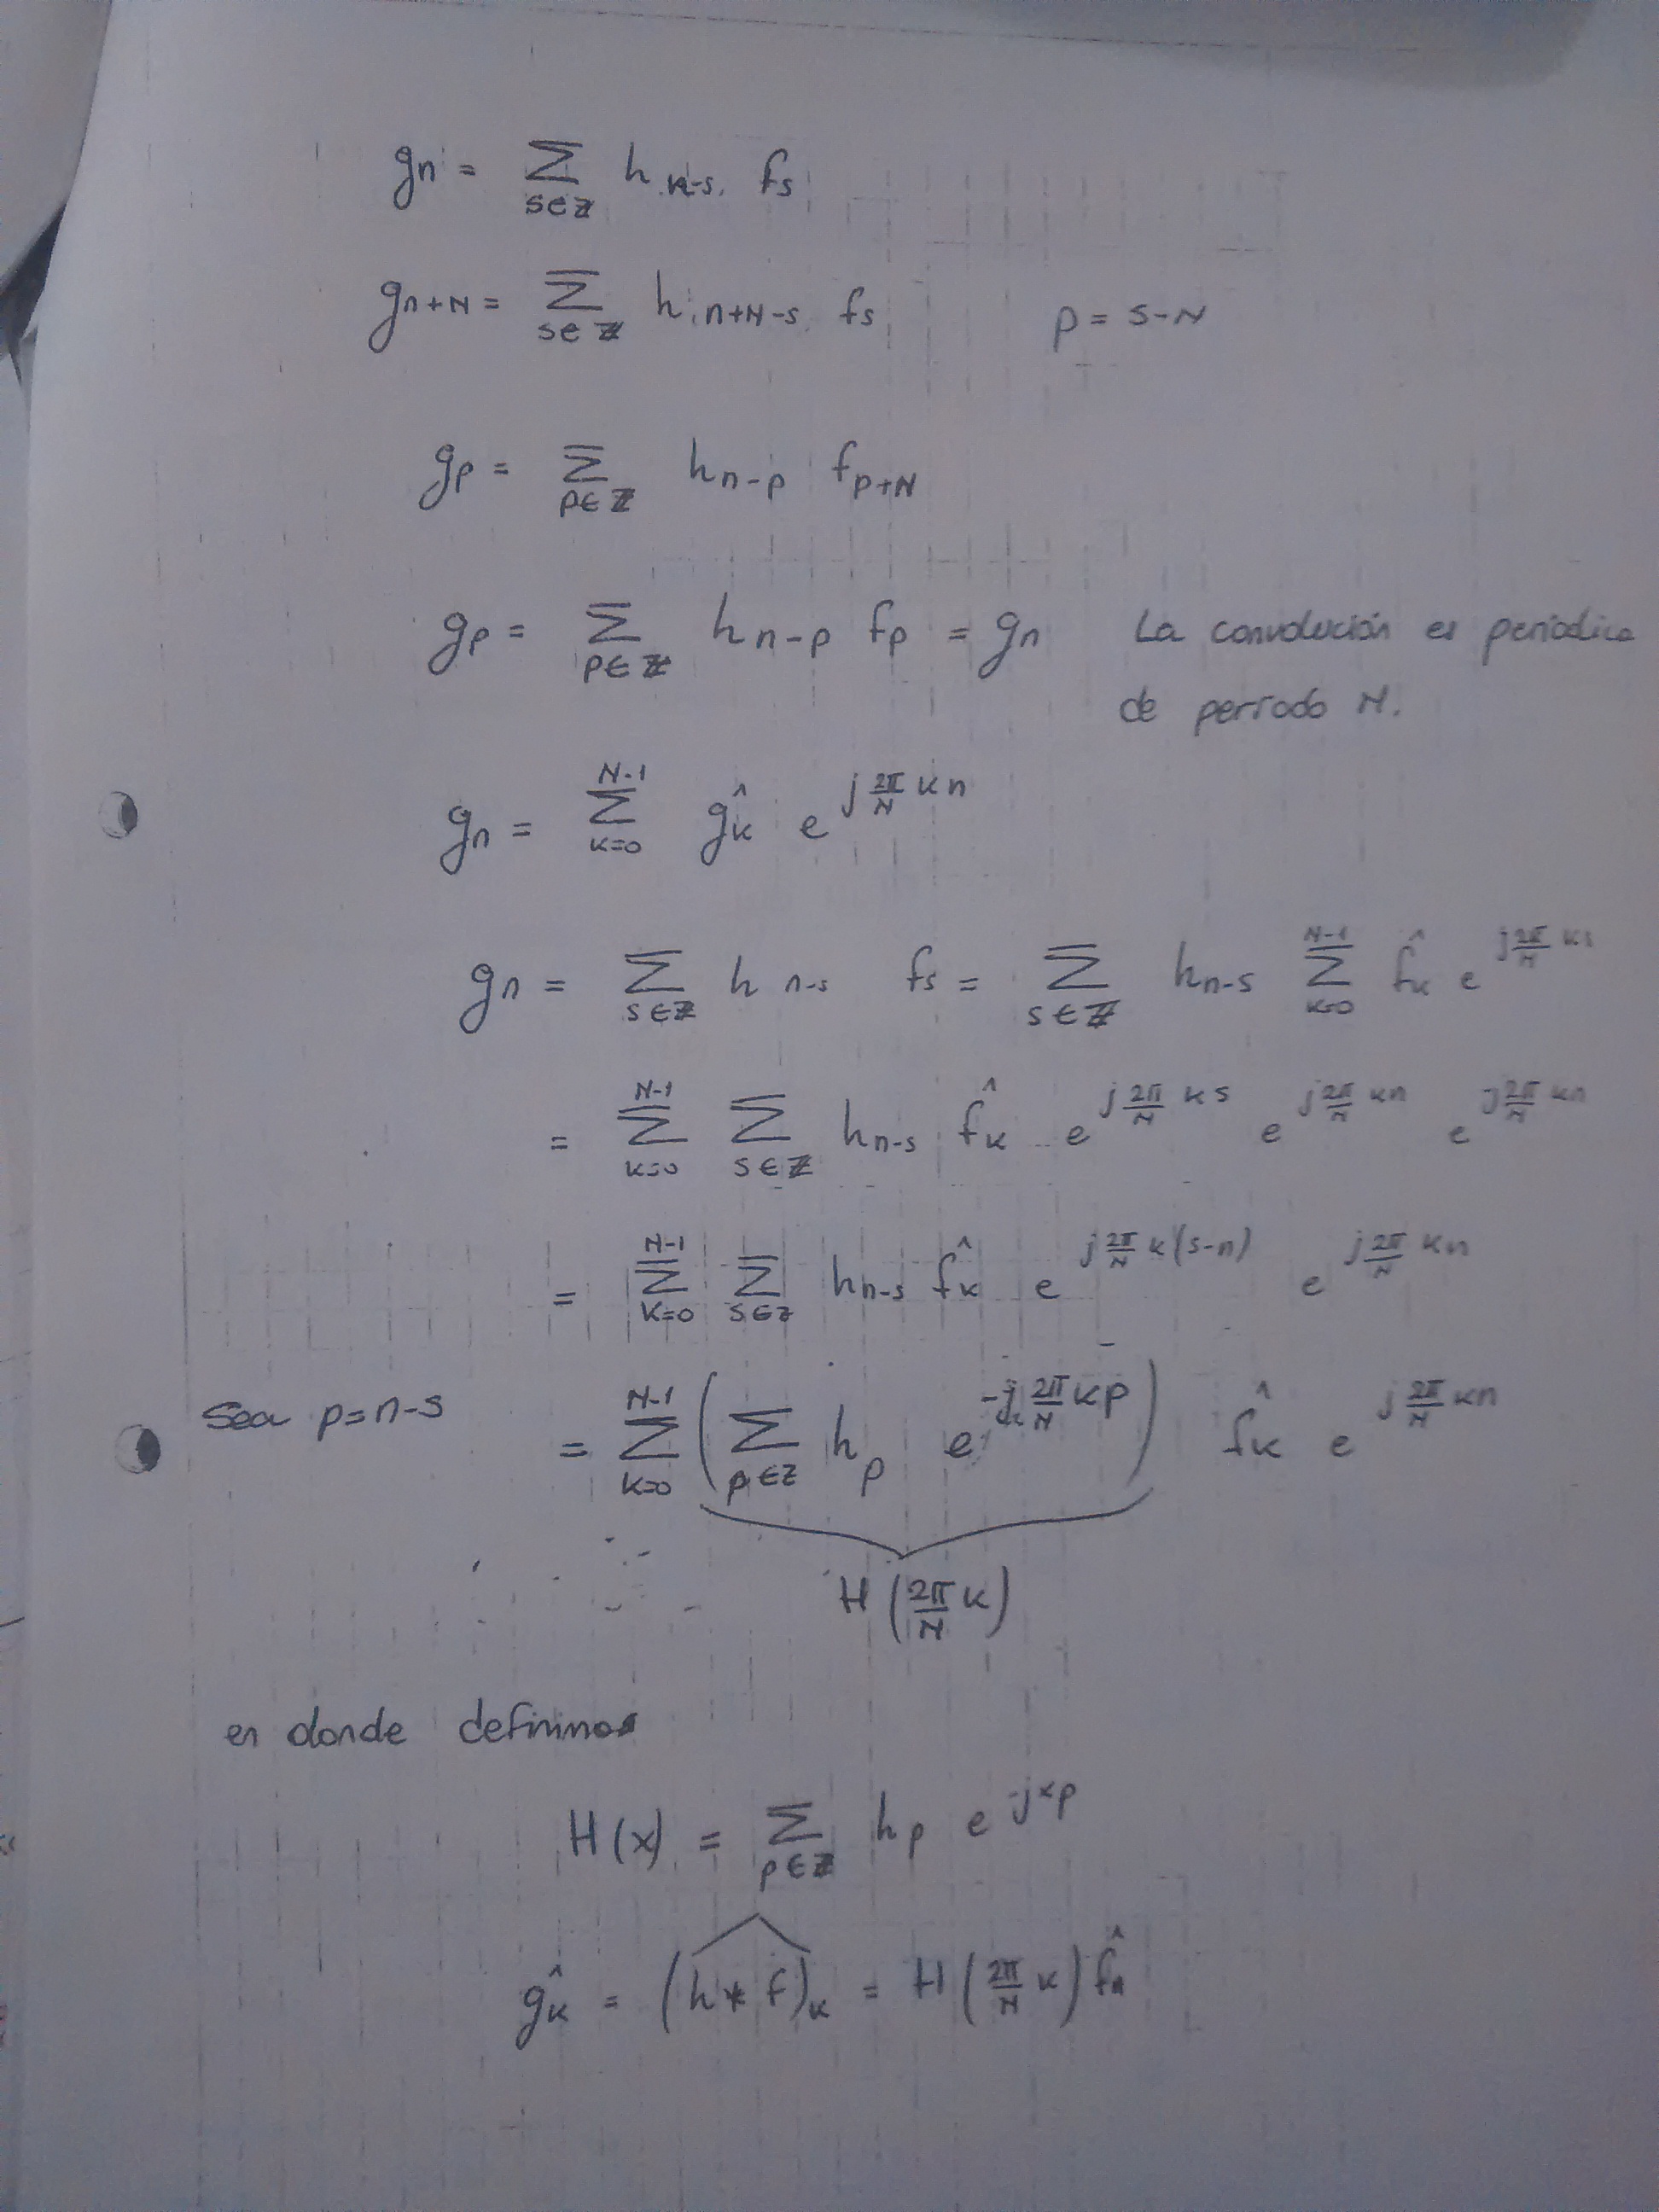 gn = Σ_{s∈ℤ} h_{n-s} f_s
g_{n+N} = Σ_{s∈ℤ} h_{n+N-s} f_s p = s-N
g_p = Σ_{p∈ℤ} h_{n-p} f_{p+N}
g_p = Σ_{p∈ℤ} h_{n-p} f_p = g_n La convolución es periódica
de período N.
g_n = Σ_{k=0}^{N-1} ĝ_k e^{j 2π/N kn}
g_n = Σ_{s∈ℤ} h_{n-s} f_s = Σ_{s∈ℤ} h_{n-s} Σ_{k=0}^{N-1} f̂_k e^{j 2π/N ks}
= Σ_{k=0}^{N-1} Σ_{s∈ℤ} h_{n-s} f̂_k e^{j 2π/N ks} e^{j 2π/N kn} e^{j 2π/N kn}
= Σ_{k=0}^{N-1} Σ_{s∈ℤ} h_{n-s} f̂_k e^{j 2π/N k(s-n)} e^{j 2π/N kn}
Sea p=n-s = Σ_{k=0}^{N-1} ( Σ_{p∈ℤ} h_p e^{-j 2π/N kp} ) f̂_k e^{j 2π/N kn}
H(2π/N k)
en donde definimos
H(x) = Σ_{p∈ℤ} h_p e^{-jxp}
ĝ_k = (h*f)^_k = H(2π/N k) f̂_k